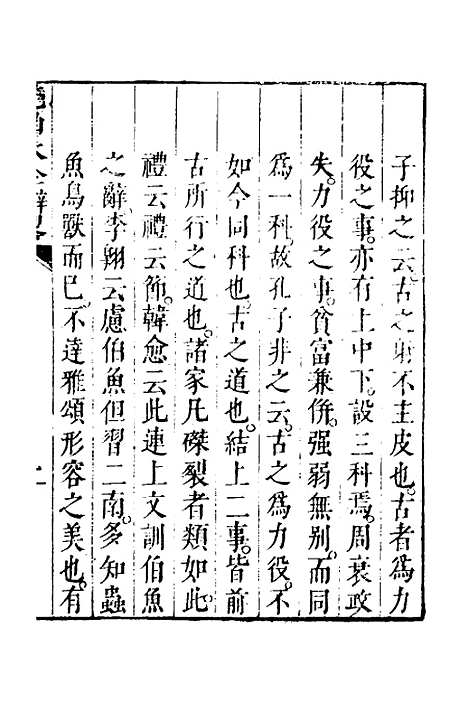 子抑之云。古之射不主皮也。古者為力
役之事。亦有上中下。設三科焉。周衰政
失。力役之事。貧富兼併。强弱無别。而同
為一科。故孔子非之云。古之為力役。不
如今同科也。古之道也。結上二事。皆前
古所行之道也。諸家凡磔裂者類如此。
禮云禮云節。韓愈云此連上文訓伯魚
之辭。李翔云慮伯魚但習二南。多知蟲
魚鳥獸而已。不達雅頌形容之美也。有